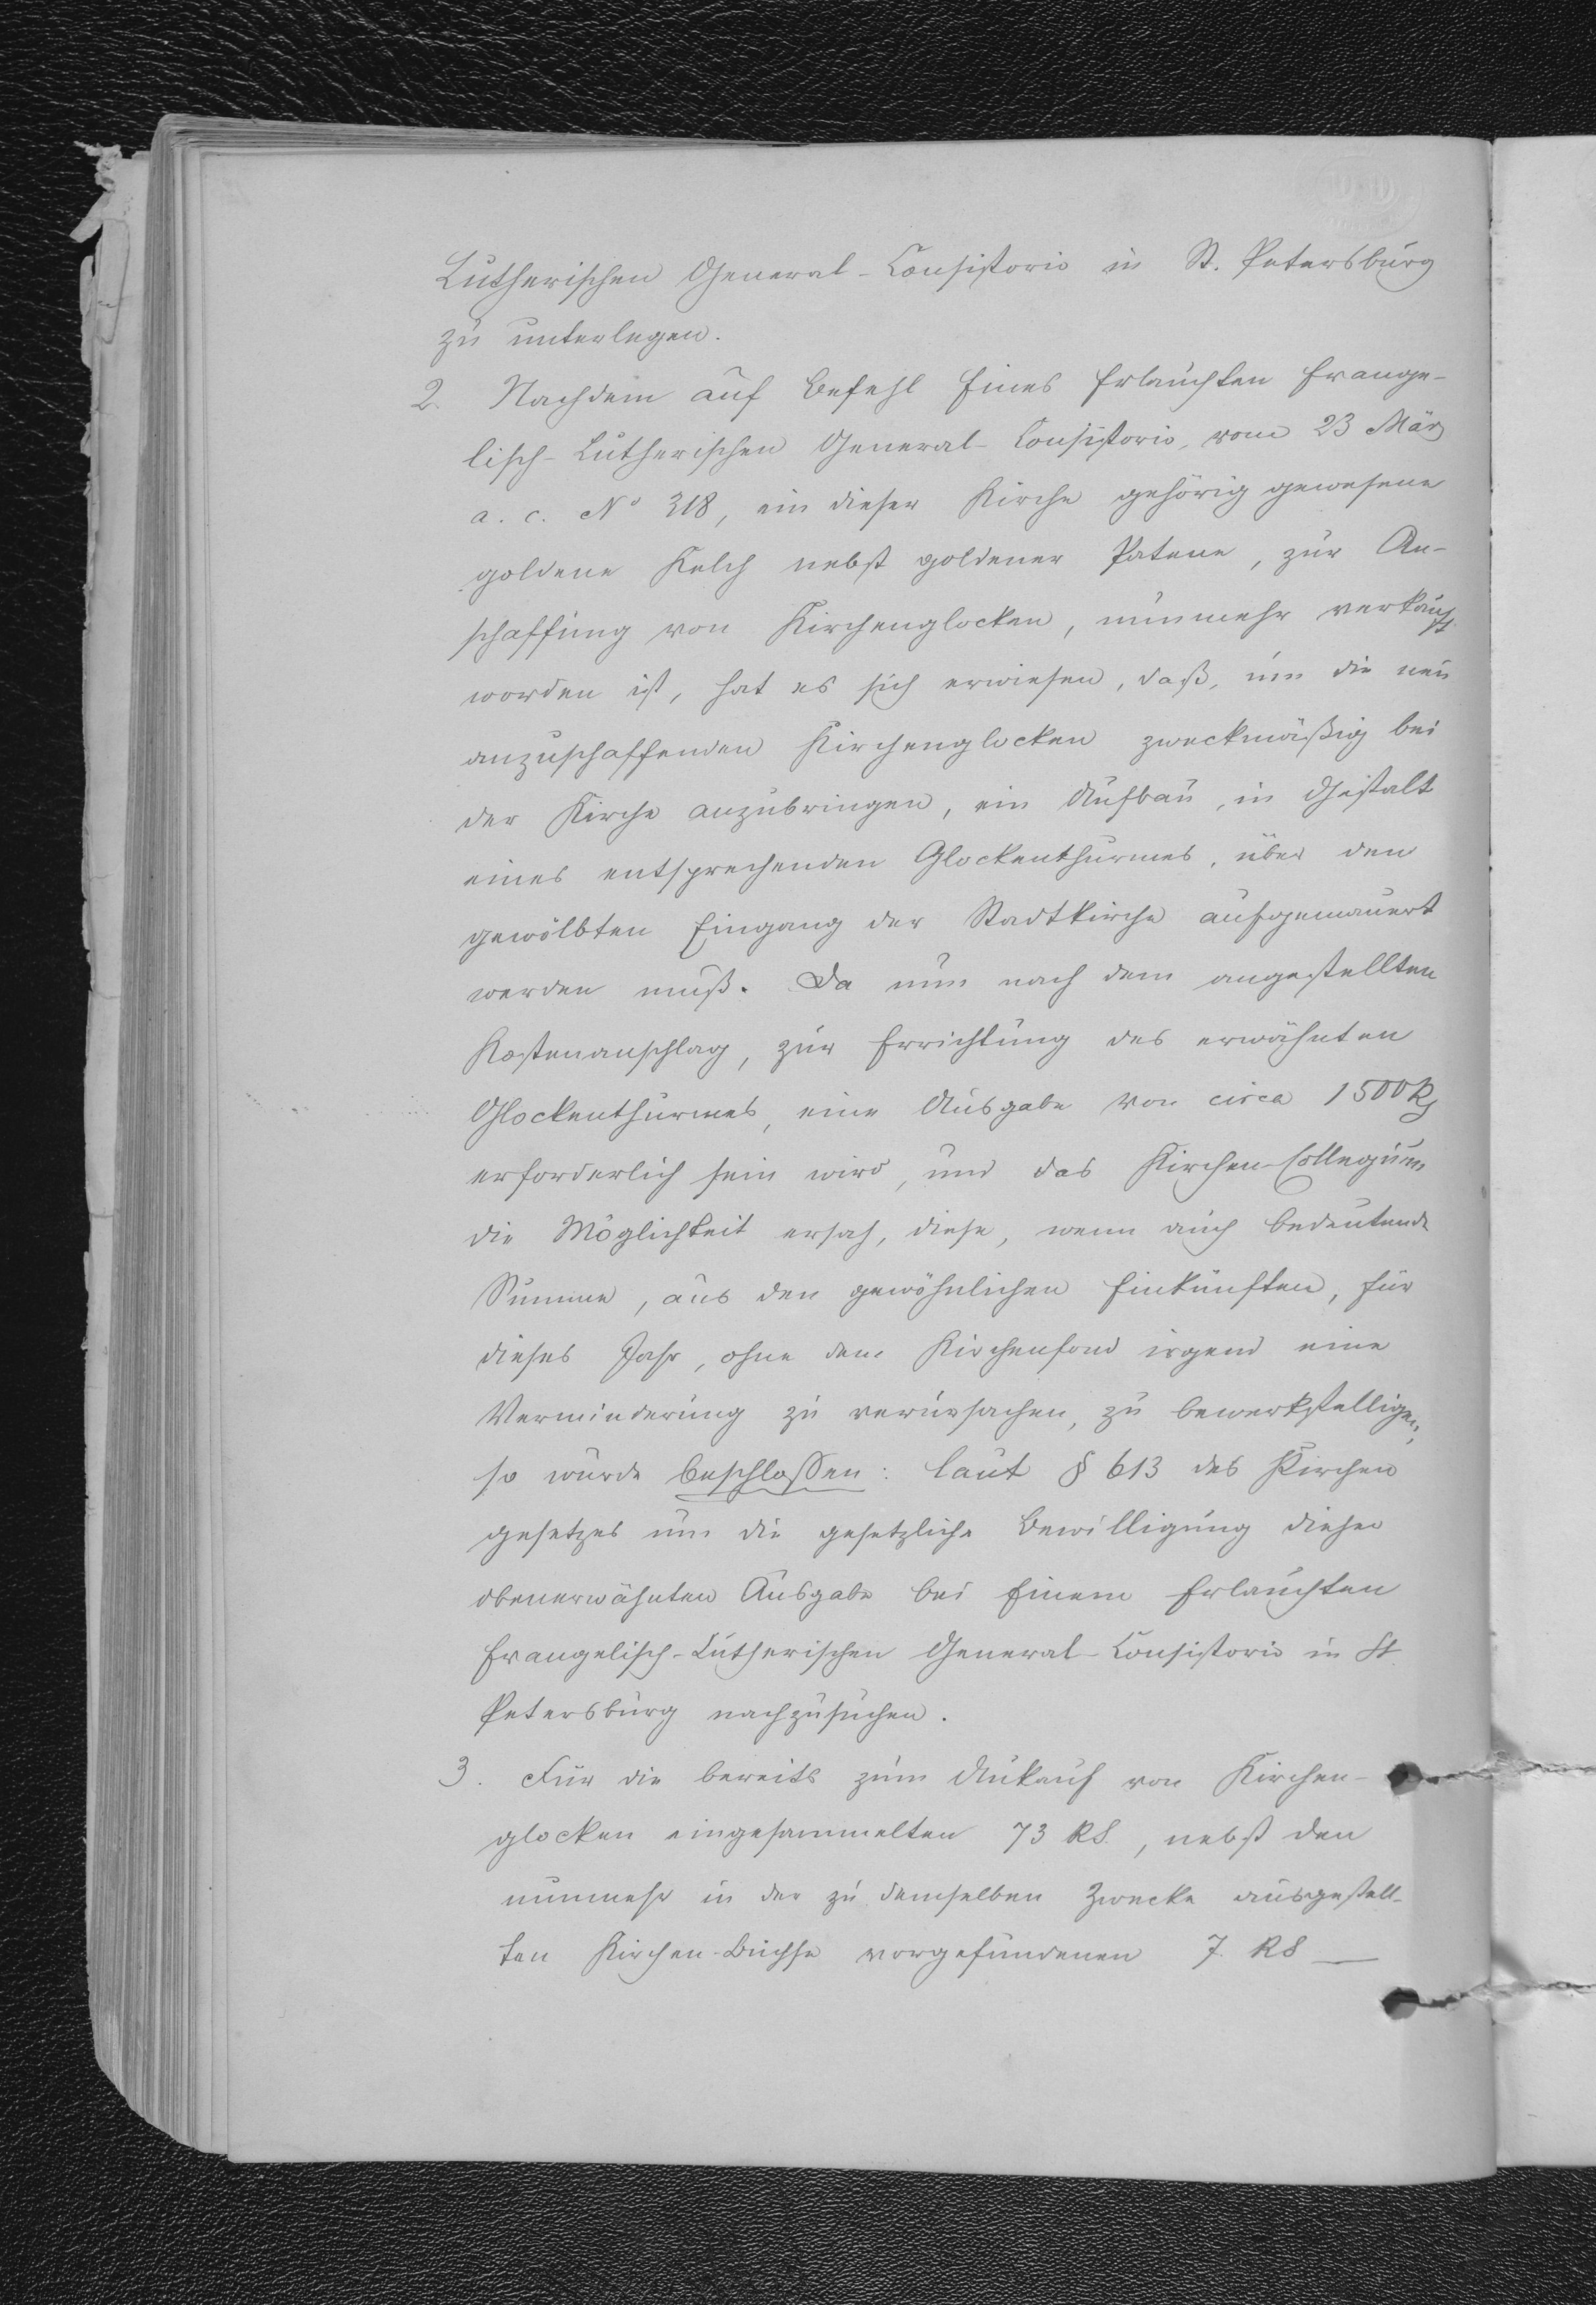 Lutherischen General-Consistorio in St. Petersburg
zu unterlegen.
2. Nachdem auf Befehl Eines Erlauchten Evange-
lisch-Lutherischen General-Consistorio, vom 23 März
a. c. No 318, ein dieser Kirche gehörig gewesene
goldene Kelch nebst goldener Patene, zur An-
schaffung von Kirchenglocken, nunmehr verkauft
worden ist, hat es sich erwiesen, daß, um die neu
anzuschaffenden Kirchenglocken zweckmäßig bei
der Kirche anzubringen, ein Aufbau, in Gestalt
eines entsprechenden Glockenthurmes, über den
gewölbten Eingang der Stadtkirche aufgemauert
werden muß. Da nun nach dem angestellten
Kostenanschlag, zur Errichtung des erwähnten
Glockenthurmes, eine Ausgabe von circa 1500 R
erforderlich sein wird, und das Kirchen-Collegium
die Möglichkeit ersah, diese, wenn auch bedeutende
Summe, aus den gewöhnlichen Einkünften, für
dieses Jahr, ohne dem Kirchenfond irgend eine
Verminderung zu verursachen, zu bewerkstelligen,
so wurde beschloßen: laut § 613 des Kirchen
gesetzes um die gesetzliche Bewilligung dieser
obenerwähnten Ausgabe bei Einem Erlauchten
Evangelisch-Lutherischen General-Consistorio in St
Petersburg nachzusuchen.
3. Für die bereits zum Ankauf von Kirchen-
glocken eingesammelten 73 RS., nebst den
nunmehr in der zu demselben Zwecke ausgestell-
ten Kirchen-Büchse vorgefundenen 7. RS —